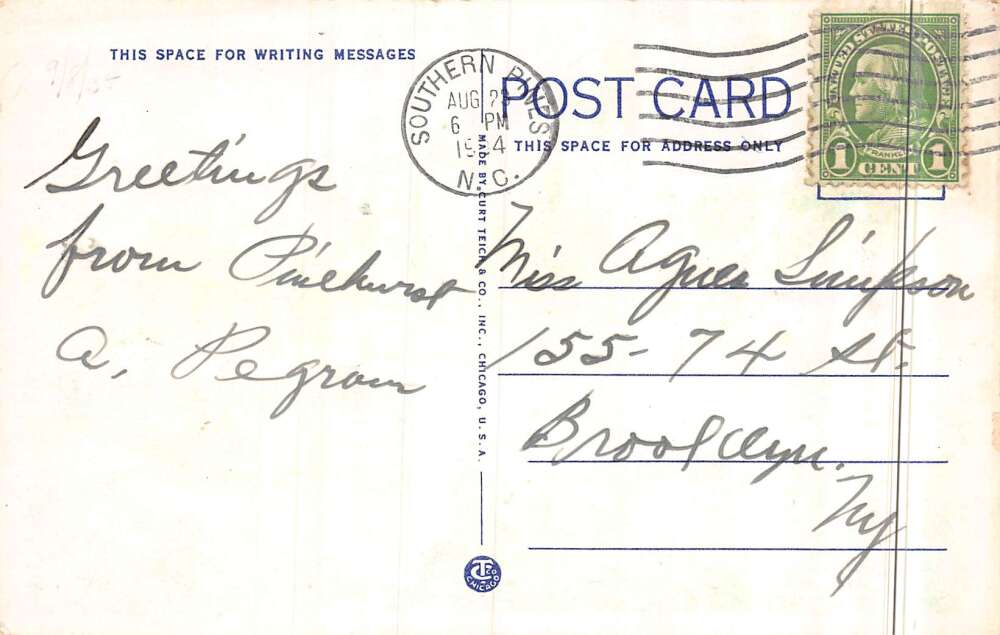 THIS SPACE FOR WRITING MESSAGES
Greetings
from Pinehurst
A. Pegram
SOUTHERN PINES
AUG
6 PM
N.C.
MADE BY CURT TEICH & CO., INC., CHICAGO, U.S.A.
C.T. CO. CHICAGO
POST CARD
THIS SPACE FOR ADDRESS ONLY
UNITED STATES POSTAGE
FRANKLIN
1 CENT 1
Miss Agnes Simpson
155-74 St.
Brooklyn.
Ny